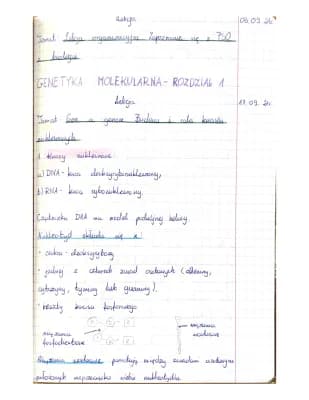 Lekcja 06.09.
Temat: Lekcja organizacyjna. Zapoznanie się z PSO
z biologii
GENETYKA MOLEKULARNA - ROZDZIAŁ 1
Lekcja 11.09.
Temat: Gen a genom. Budowa i rola kwasów
nukleinowych
1. Kwasy nukleinowe:
a) DNA - kwas deoksyrybonukleinowy,
b) RNA - kwas rybonukleinowy.
Cząsteczka DNA ma model podwójnej helisy.
Nukleotyd składa się z:
• cukru - deoksyrybozy
• jednej z czterech zasad azotowych (adeniny,
cytozyny, tyminy lub guaniny).
• reszty kwasu fosforowego
wiązania
wodorowe
wiązania
fosfodiestrowe
Wiązania wodorowe powstają między zasadami azotowymi
położonych naprzeciwko siebie nukleotydów